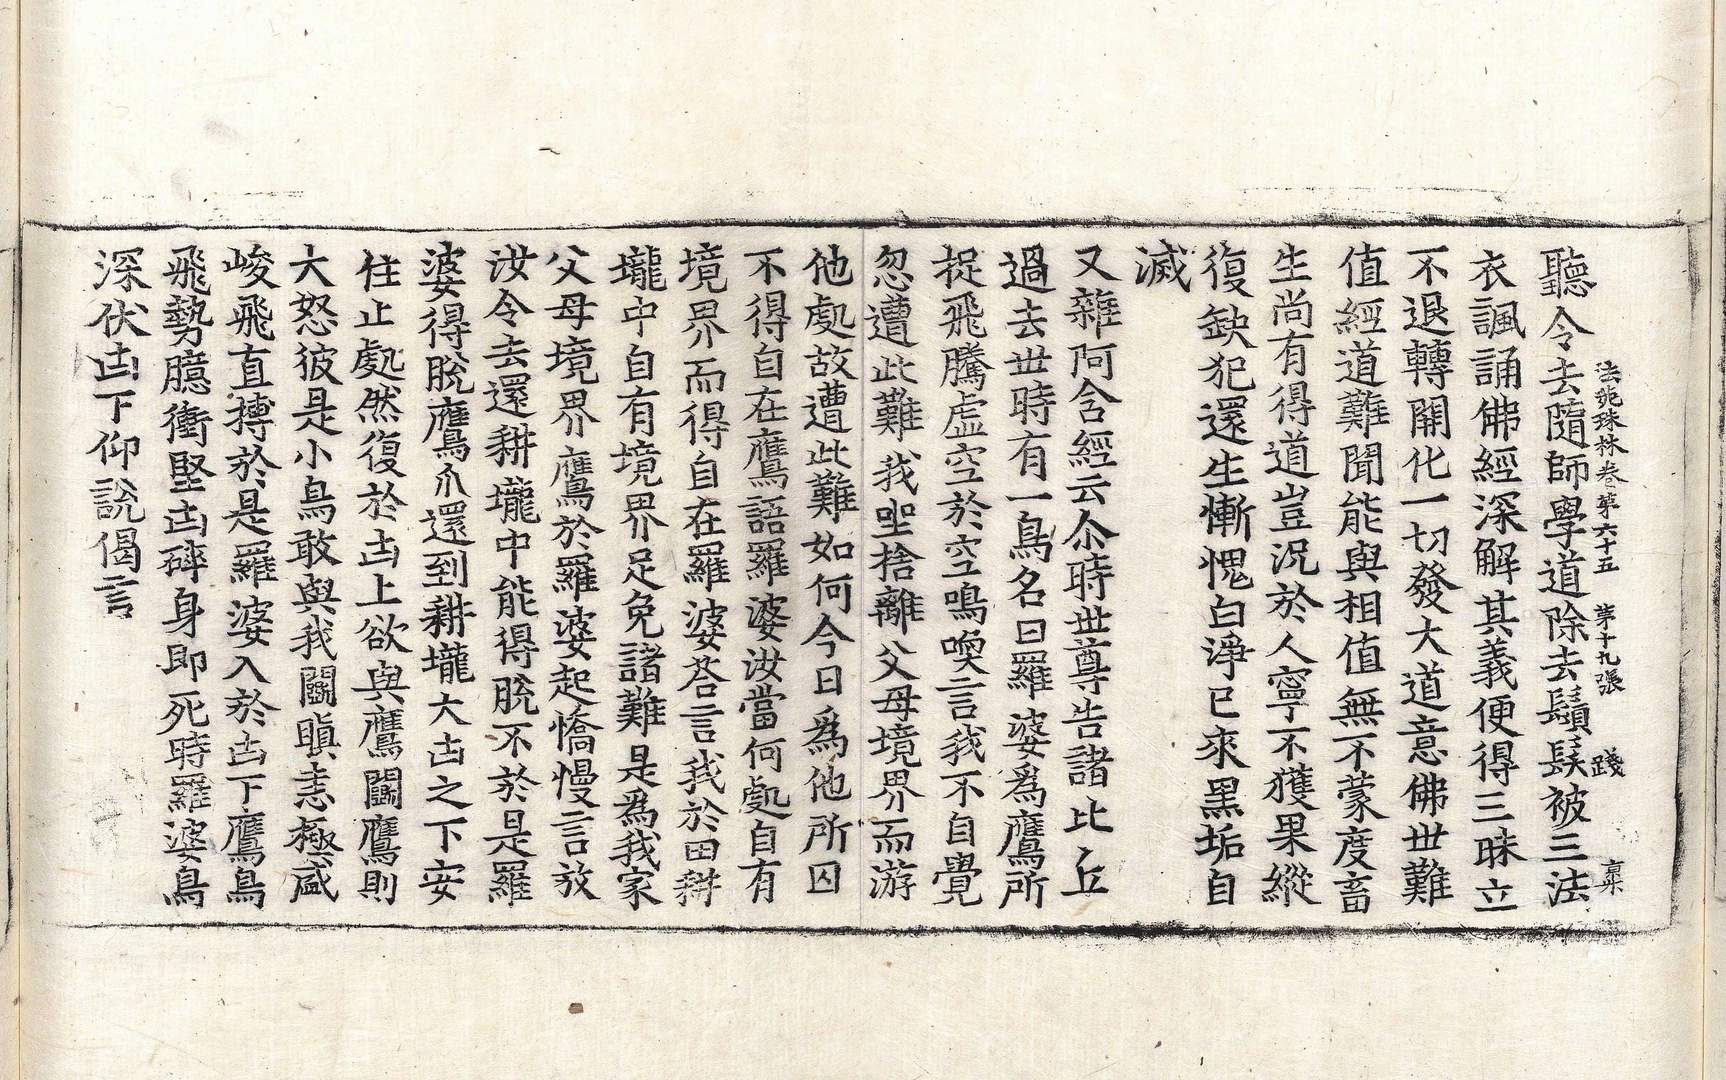 法苑珠林卷第六十五　第十九張　踐
聽令去隨師學道除去鬚髮被三法
衣諷誦佛經深解其義便得三昧立
不退轉開化一切發大道意佛世難
值經道難聞能與相值無不蒙度畜
生尚有得道豈況於人寧不獲果縱
復缺犯還生慚愧白淨已來黑垢自
滅
又雜阿含經云尒時世尊告諸比丘
過去世時有一鳥名曰羅婆為鷹所
捉飛騰虛空於空鳴喚言我不自覺
忽遭此難我坐捨離父母境界而游
他處故遭此難如何今日為他所囚
不得自在鷹語羅婆汝當何處自有
境界而得自在羅婆荅言我於田耕
壠中自有境界足免諸難是為我家
父母境界鷹於羅婆起憍慢言放
汝令去還耕壠中能得脫不於是羅
婆得脫鷹爪還到耕壠大𠙽之下安
住止處然復於𠙽上欲與鷹鬪鷹則
大怒彼是小鳥敢與我鬪瞋恚極盛
峻飛直搏於是羅婆入於𠙽下鷹鳥
飛勢臆衝堅𠙽碎身即死時羅婆鳥
深伏𠙽下仰說偈言